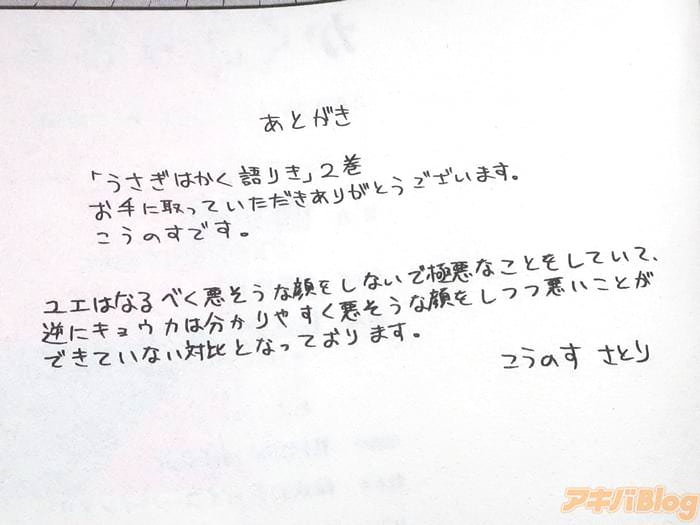 あとがき
「うさぎはかく語りき」2巻
お手に取っていただきありがとうございます。
こうのすです。
ユエはなるべく悪そうな顔をしないで極悪なことをしていて、
逆にキョウカは分かりやすく悪そうな顔をしつつ悪いことが
できていない対比となっております。
こうのす さとり
アキバBlog